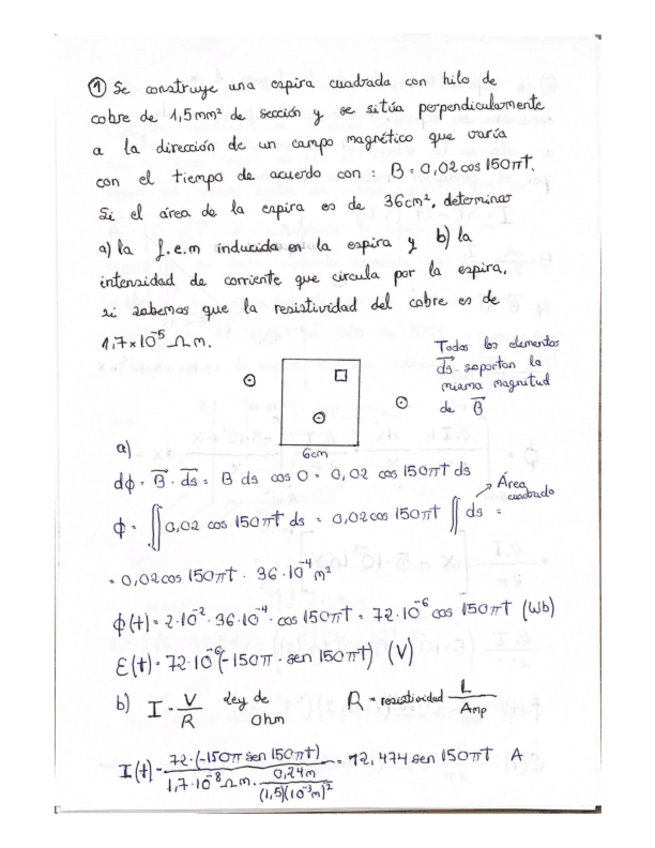 ① Se construye una espira cuadrada con hilo de
cobre de 1,5mm² de sección y se sitúa perpendicularmente
a la dirección de un campo magnético que varía
con el tiempo de acuerdo con : B = 0,02 cos 150πt.
Si el área de la espira es de 36cm², determinar
a) la f.e.m inducida en la espira y b) la
intensidad de corriente que circula por la espira,
si sabemos que la resistividad del cobre es de
1,7×10⁻⁵ Ωm.
Todos los elementos
ds soportan la
misma magnitud
de B
6cm
a)
dϕ = B · ds = B ds cos 0 = 0,02 cos 150πt ds
Área
cuadrado
ϕ = ∬ 0,02 cos 150πt ds = 0,02 cos 150πt ∬ ds =
= 0,02 cos 150πt · 36·10⁻⁴ m²
ϕ(t) = 2·10⁻² · 36·10⁻⁴ · cos 150πt = 72·10⁻⁶ cos 150πt (Wb)
ε(t) = 72·10⁻⁶(-150π · sen 150πt) (V)
b) I = V/R Ley de Ohm R = resistividad L/Amp
I(t) = 72·(-150π sen 150πt) / 1,7·10⁻⁸ Ωm · 0,24m/(1,5)(10⁻³m)² = 12,474 sen 150πt A